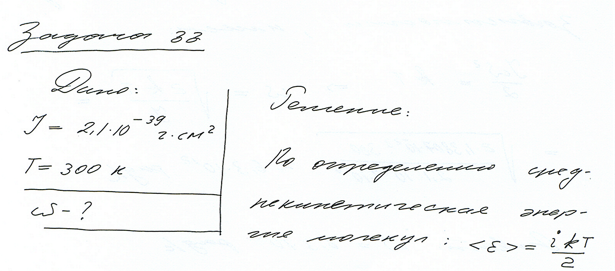 Задача 33
Дано:
J = 2,1·10⁻³⁹ г·см²
T = 300 к
ω - ?
Решение:
По определению сред-
некинетическая энер-
гия молекул: <ε> = ikT/2